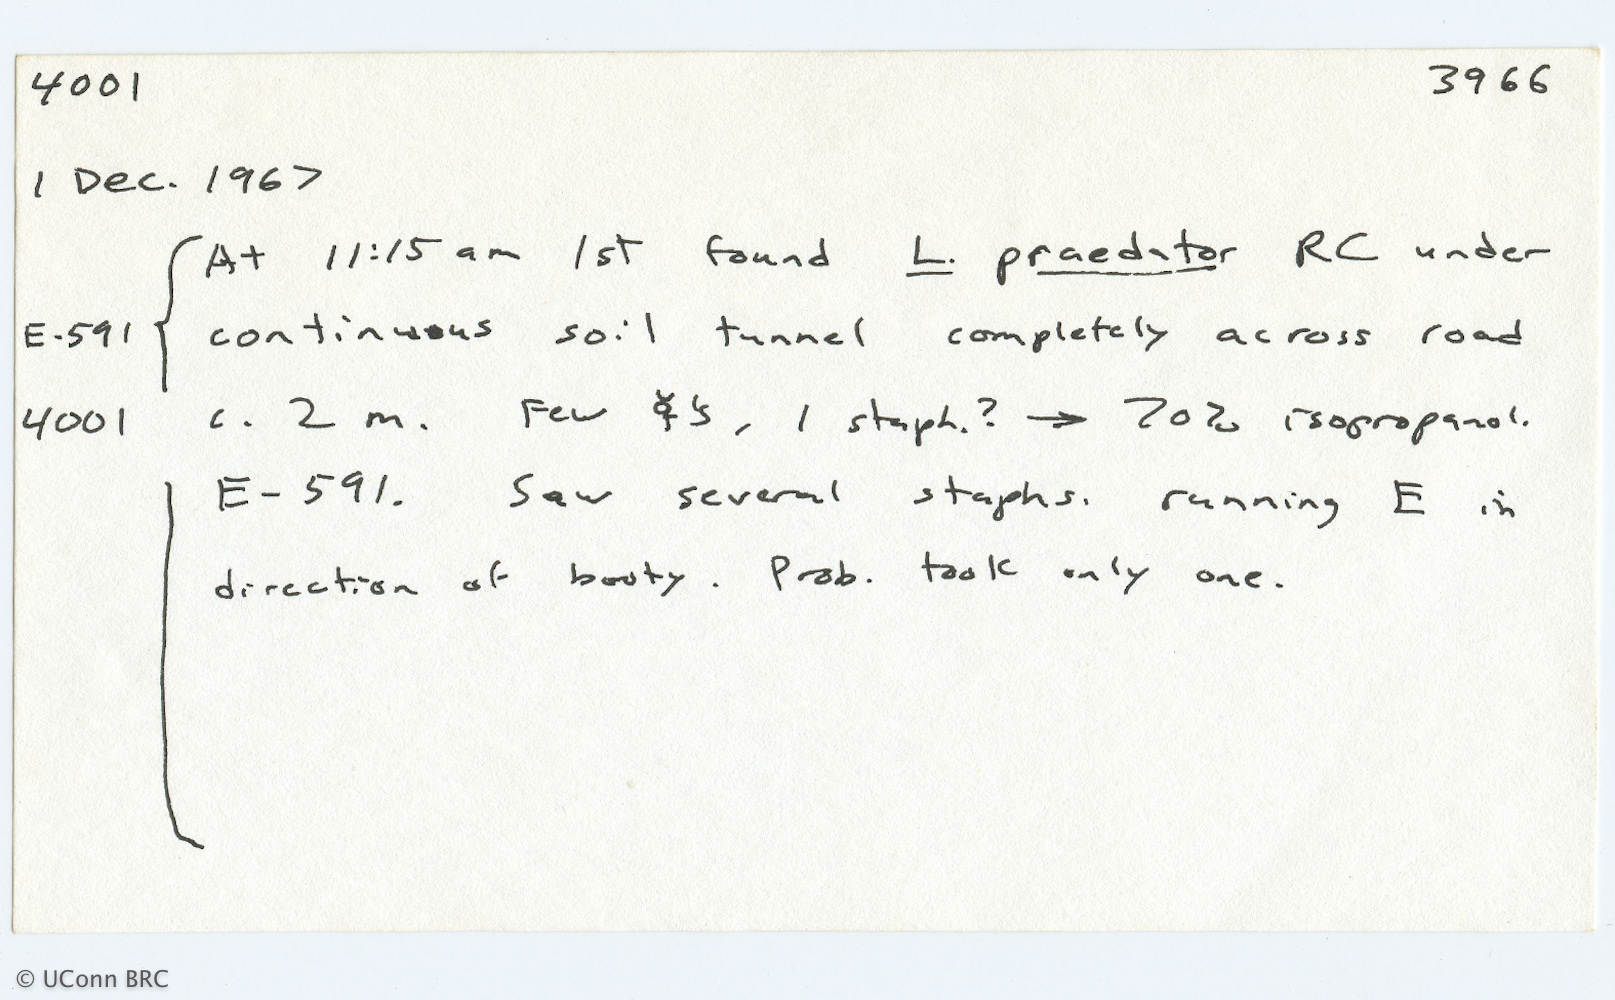 4001 3966
1 Dec. 1967
At 11:15 am 1st found L. praedator RC under
E-591 continuous soil tunnel completely across road
4001 c. 2 m. Few ☿'s, 1 staph.? → 70% isopropanol.
E-591. Saw several staphs. running E in
direction of booty. Prob. took only one.
© UConn BRC